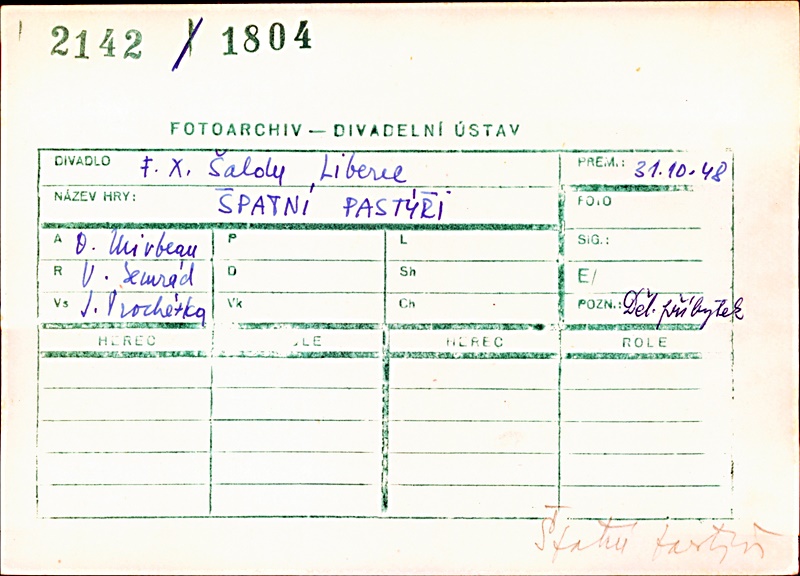 2142 / 1804
FOTOARCHIV — DIVADELNÍ ÚSTAV
DIVADLO F. X. Šaldy Liberec PREM.: 31.10.48
NÁZEV HRY: ŠPATNÍ PASTÝŘI FOTO
A O. Mirbeau P L SIG.:
R V. Semrád D Sh E/
Vs J. Procházka Vk Ch POZN.: Děl. příbytek
HEREC ROLE HEREC ROLE
Špatní pastýři